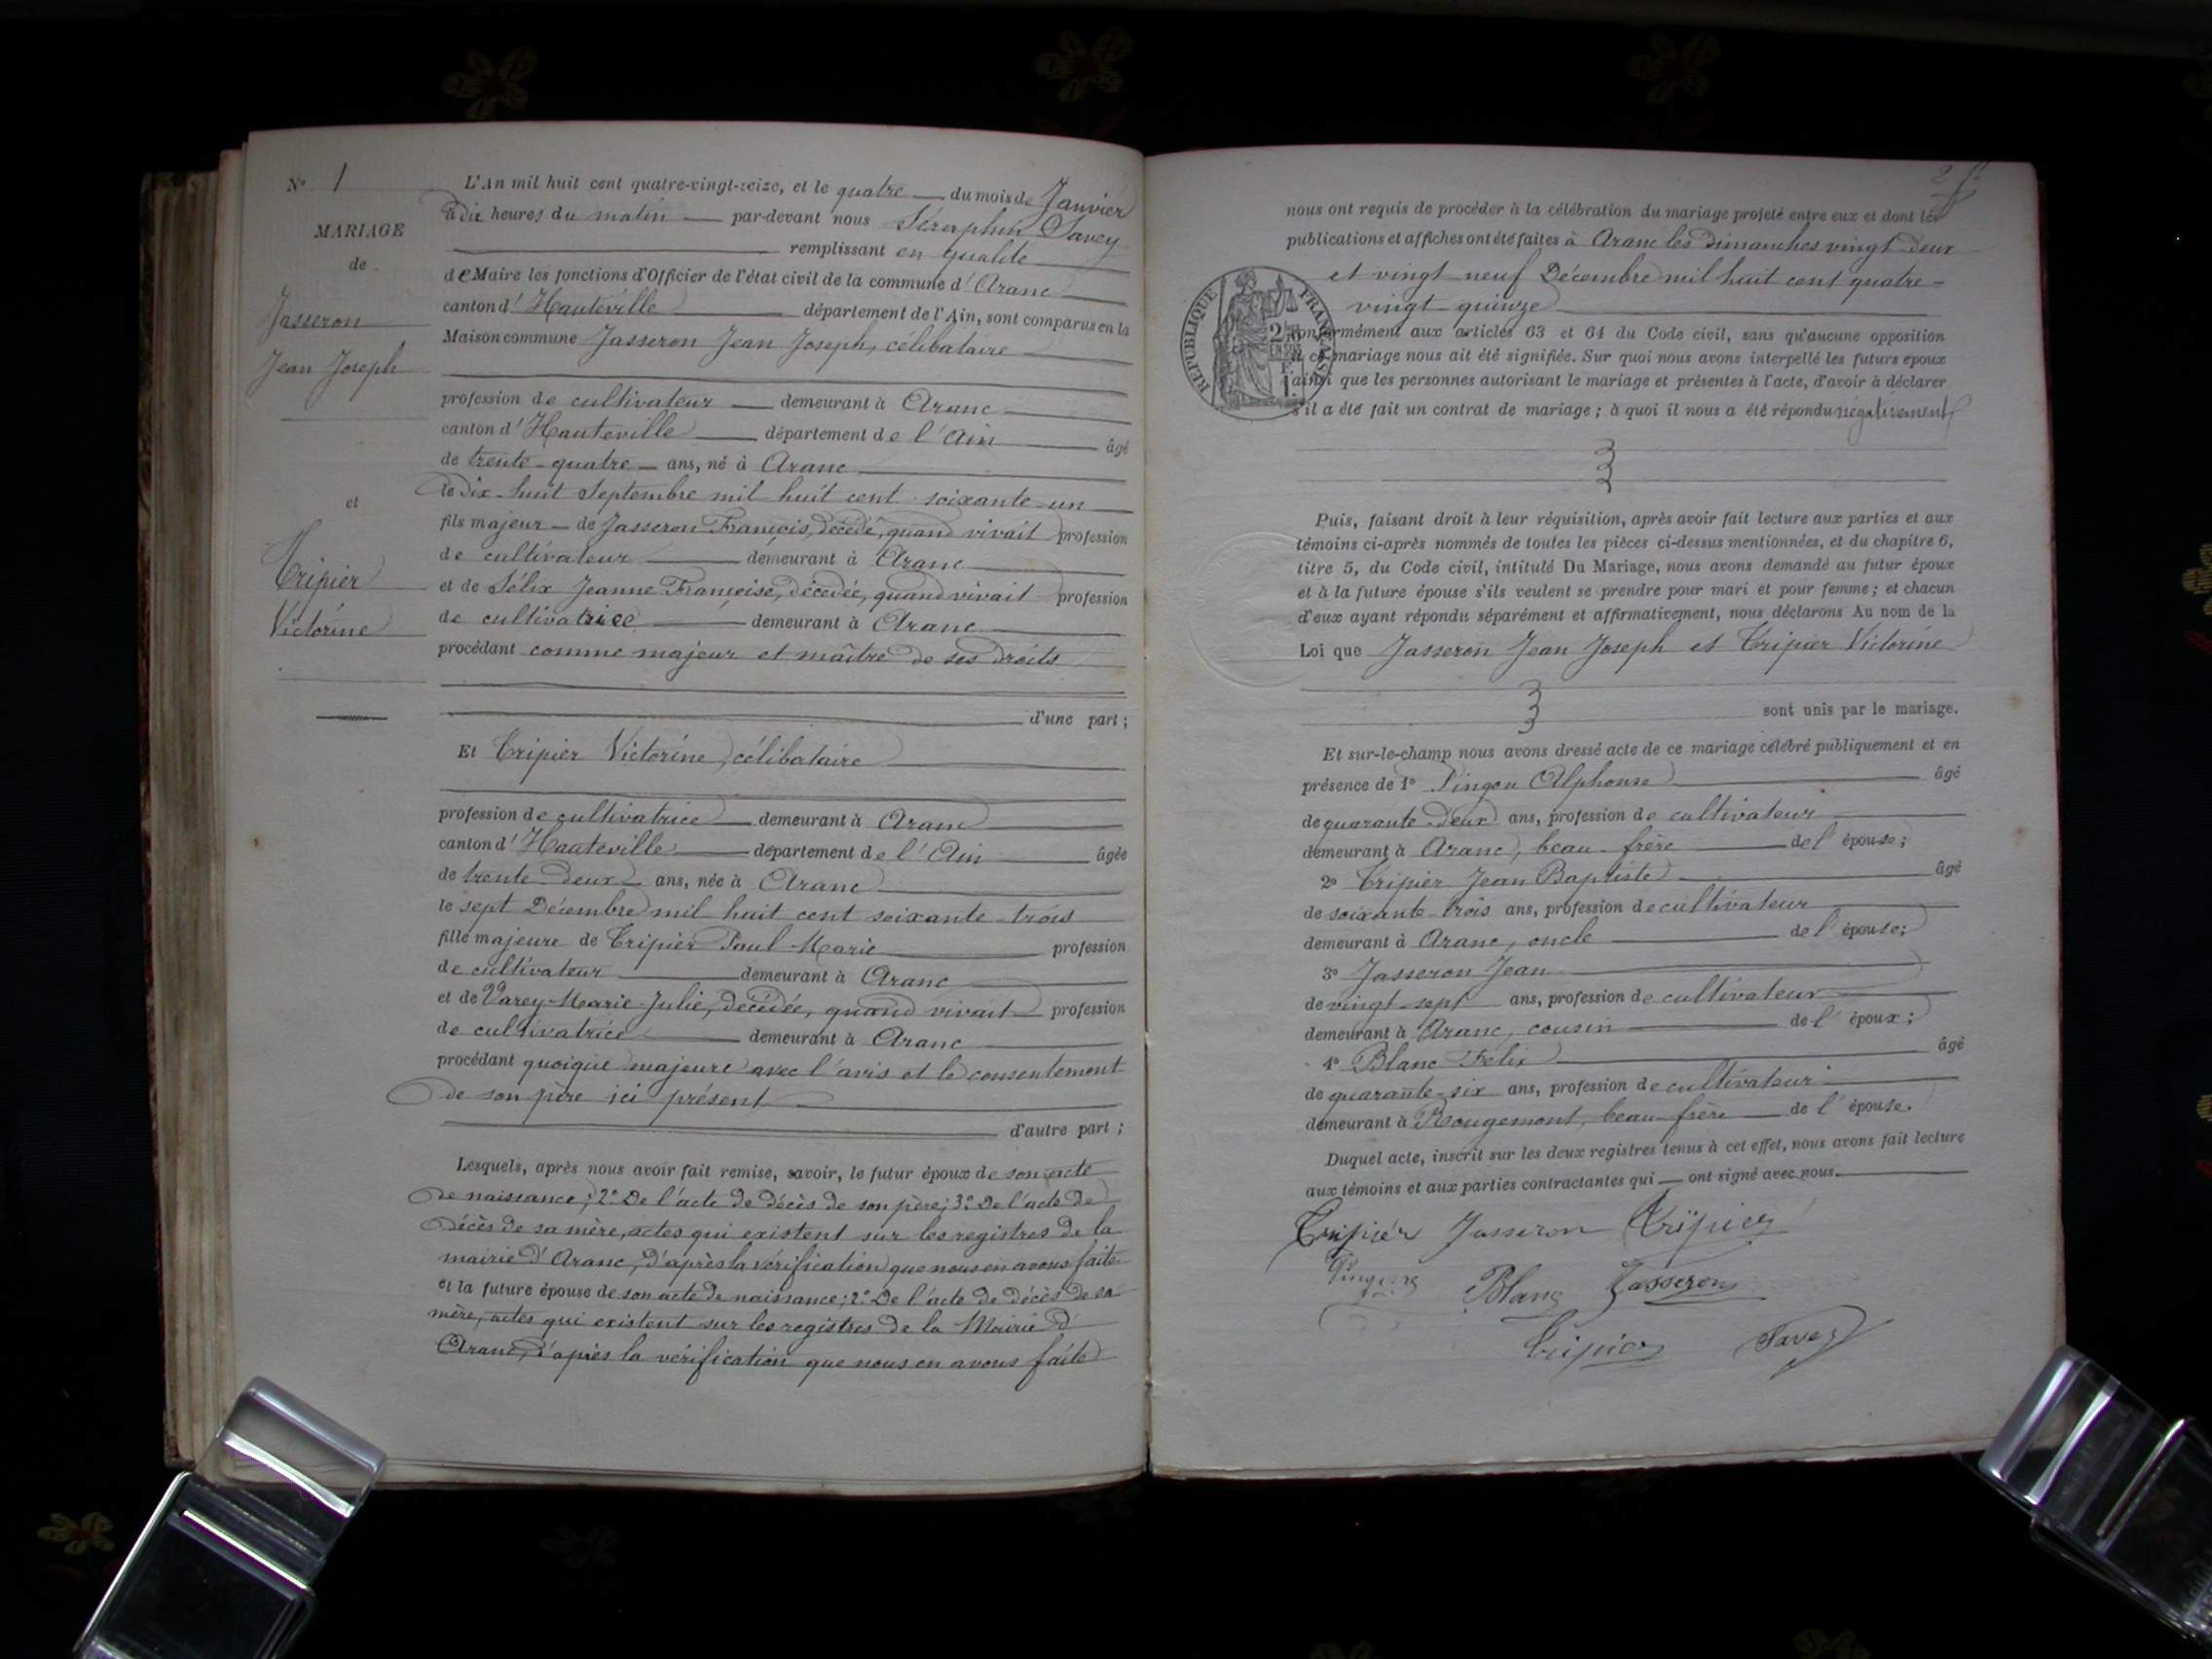 N° 1
MARIAGE
de
Jasseron
Jean Joseph
et
Tripier
Victorine
L'An mil huit cent quatre-vingt-seize, et le quatre du mois de Janvier
à dix heures du matin par-devant nous Séraphin Savey
remplissant en qualité
de Maire les fonctions d'Officier de l'état civil de la commune d'Aranc
canton d'Hauteville département de l'Ain, sont comparus en la
Maison commune Jasseron Jean Joseph, célibataire
profession de cultivateur demeurant à Aranc
canton d'Hauteville département de l'Ain âgé
de trente-quatre ans, né à Aranc
le dix-huit Septembre mil huit cent soixante-un
fils majeur de Jasseron François, décédé, quand vivait profession
de cultivateur demeurant à Aranc
et de Félix Jeanne Françoise, décédée, quand vivait profession
de cultivatrice demeurant à Aranc
procédant comme majeur et maître de ses droits
d'une part ;
Et Tripier Victorine, célibataire
profession de cultivatrice demeurant à Aranc
canton d'Hauteville département de l'Ain âgée
de trente-deux ans, née à Aranc
le sept Décembre mil huit cent soixante-trois
fille majeure de Tripier Paul-Marie profession
de cultivateur demeurant à Aranc
et de Varey-Marie-Julie, décédée, quand vivait profession
de cultivatrice demeurant à Aranc
procédant quoique majeure avec l'avis et le consentement
de son père ici présent
d'autre part ;
Lesquels, après nous avoir fait remise, savoir, le futur époux de son acte
de naissance; 2° De l'acte de décès de son père; 3° De l'acte de
décès de sa mère, actes qui existent sur les registres de la
mairie d'Aranc, d'après la vérification que nous en avons faite
et la future épouse de son acte de naissance; 2° De l'acte de décès de sa
mère, actes qui existent sur les registres de la Mairie d'
Aranc, d'après la vérification que nous en avons faite
2
nous ont requis de procéder à la célébration du mariage projeté entre eux et dont les
publications et affiches ont été faites à Aranc les dimanches vingt-deux
et vingt-neuf Décembre mil huit cent quatre-
vingt-quinze
RÉPUBLIQUE FRANÇAISE
conformément aux articles 63 et 64 du Code civil, sans qu'aucune opposition
à ce mariage nous ait été signifiée. Sur quoi nous avons interpellé les futurs époux
ainsi que les personnes autorisant le mariage et présentes à l'acte, d'avoir à déclarer
s'il a été fait un contrat de mariage ; à quoi il nous a été répondu négativement
Puis, faisant droit à leur réquisition, après avoir fait lecture aux parties et aux
témoins ci-après nommés de toutes les pièces ci-dessus mentionnées, et du chapitre 6,
titre 5, du Code civil, intitulé Du Mariage, nous avons demandé au futur époux
et à la future épouse s'ils veulent se prendre pour mari et pour femme ; et chacun
d'eux ayant répondu séparément et affirmativement, nous déclarons Au nom de la
Loi que Jasseron Jean Joseph et Tripier Victorine
sont unis par le mariage.
Et sur-le-champ nous avons dressé acte de ce mariage célébré publiquement et en
présence de 1° Pingon Alphonse âgé
de quarante-deux ans, profession de cultivateur
demeurant à Aranc, beau-frère de l'épouse;
2° Tripier Jean Baptiste âgé
de soixante-trois ans, profession de cultivateur
demeurant à Aranc, oncle de l'épouse;
3° Jasseron Jean
de vingt-sept ans, profession de cultivateur
demeurant à Aranc, cousin de l'époux;
4° Blanc Félix âgé
de quarante-six ans, profession de cultivateur
demeurant à Rougemont, beau-frère de l'épouse.
Duquel acte, inscrit sur les deux registres tenus à cet effet, nous avons fait lecture
aux témoins et aux parties contractantes qui ont signé avec nous.
Tripier Jasseron Tripier
Pingon Blanc Jasseron
Tripier Savey